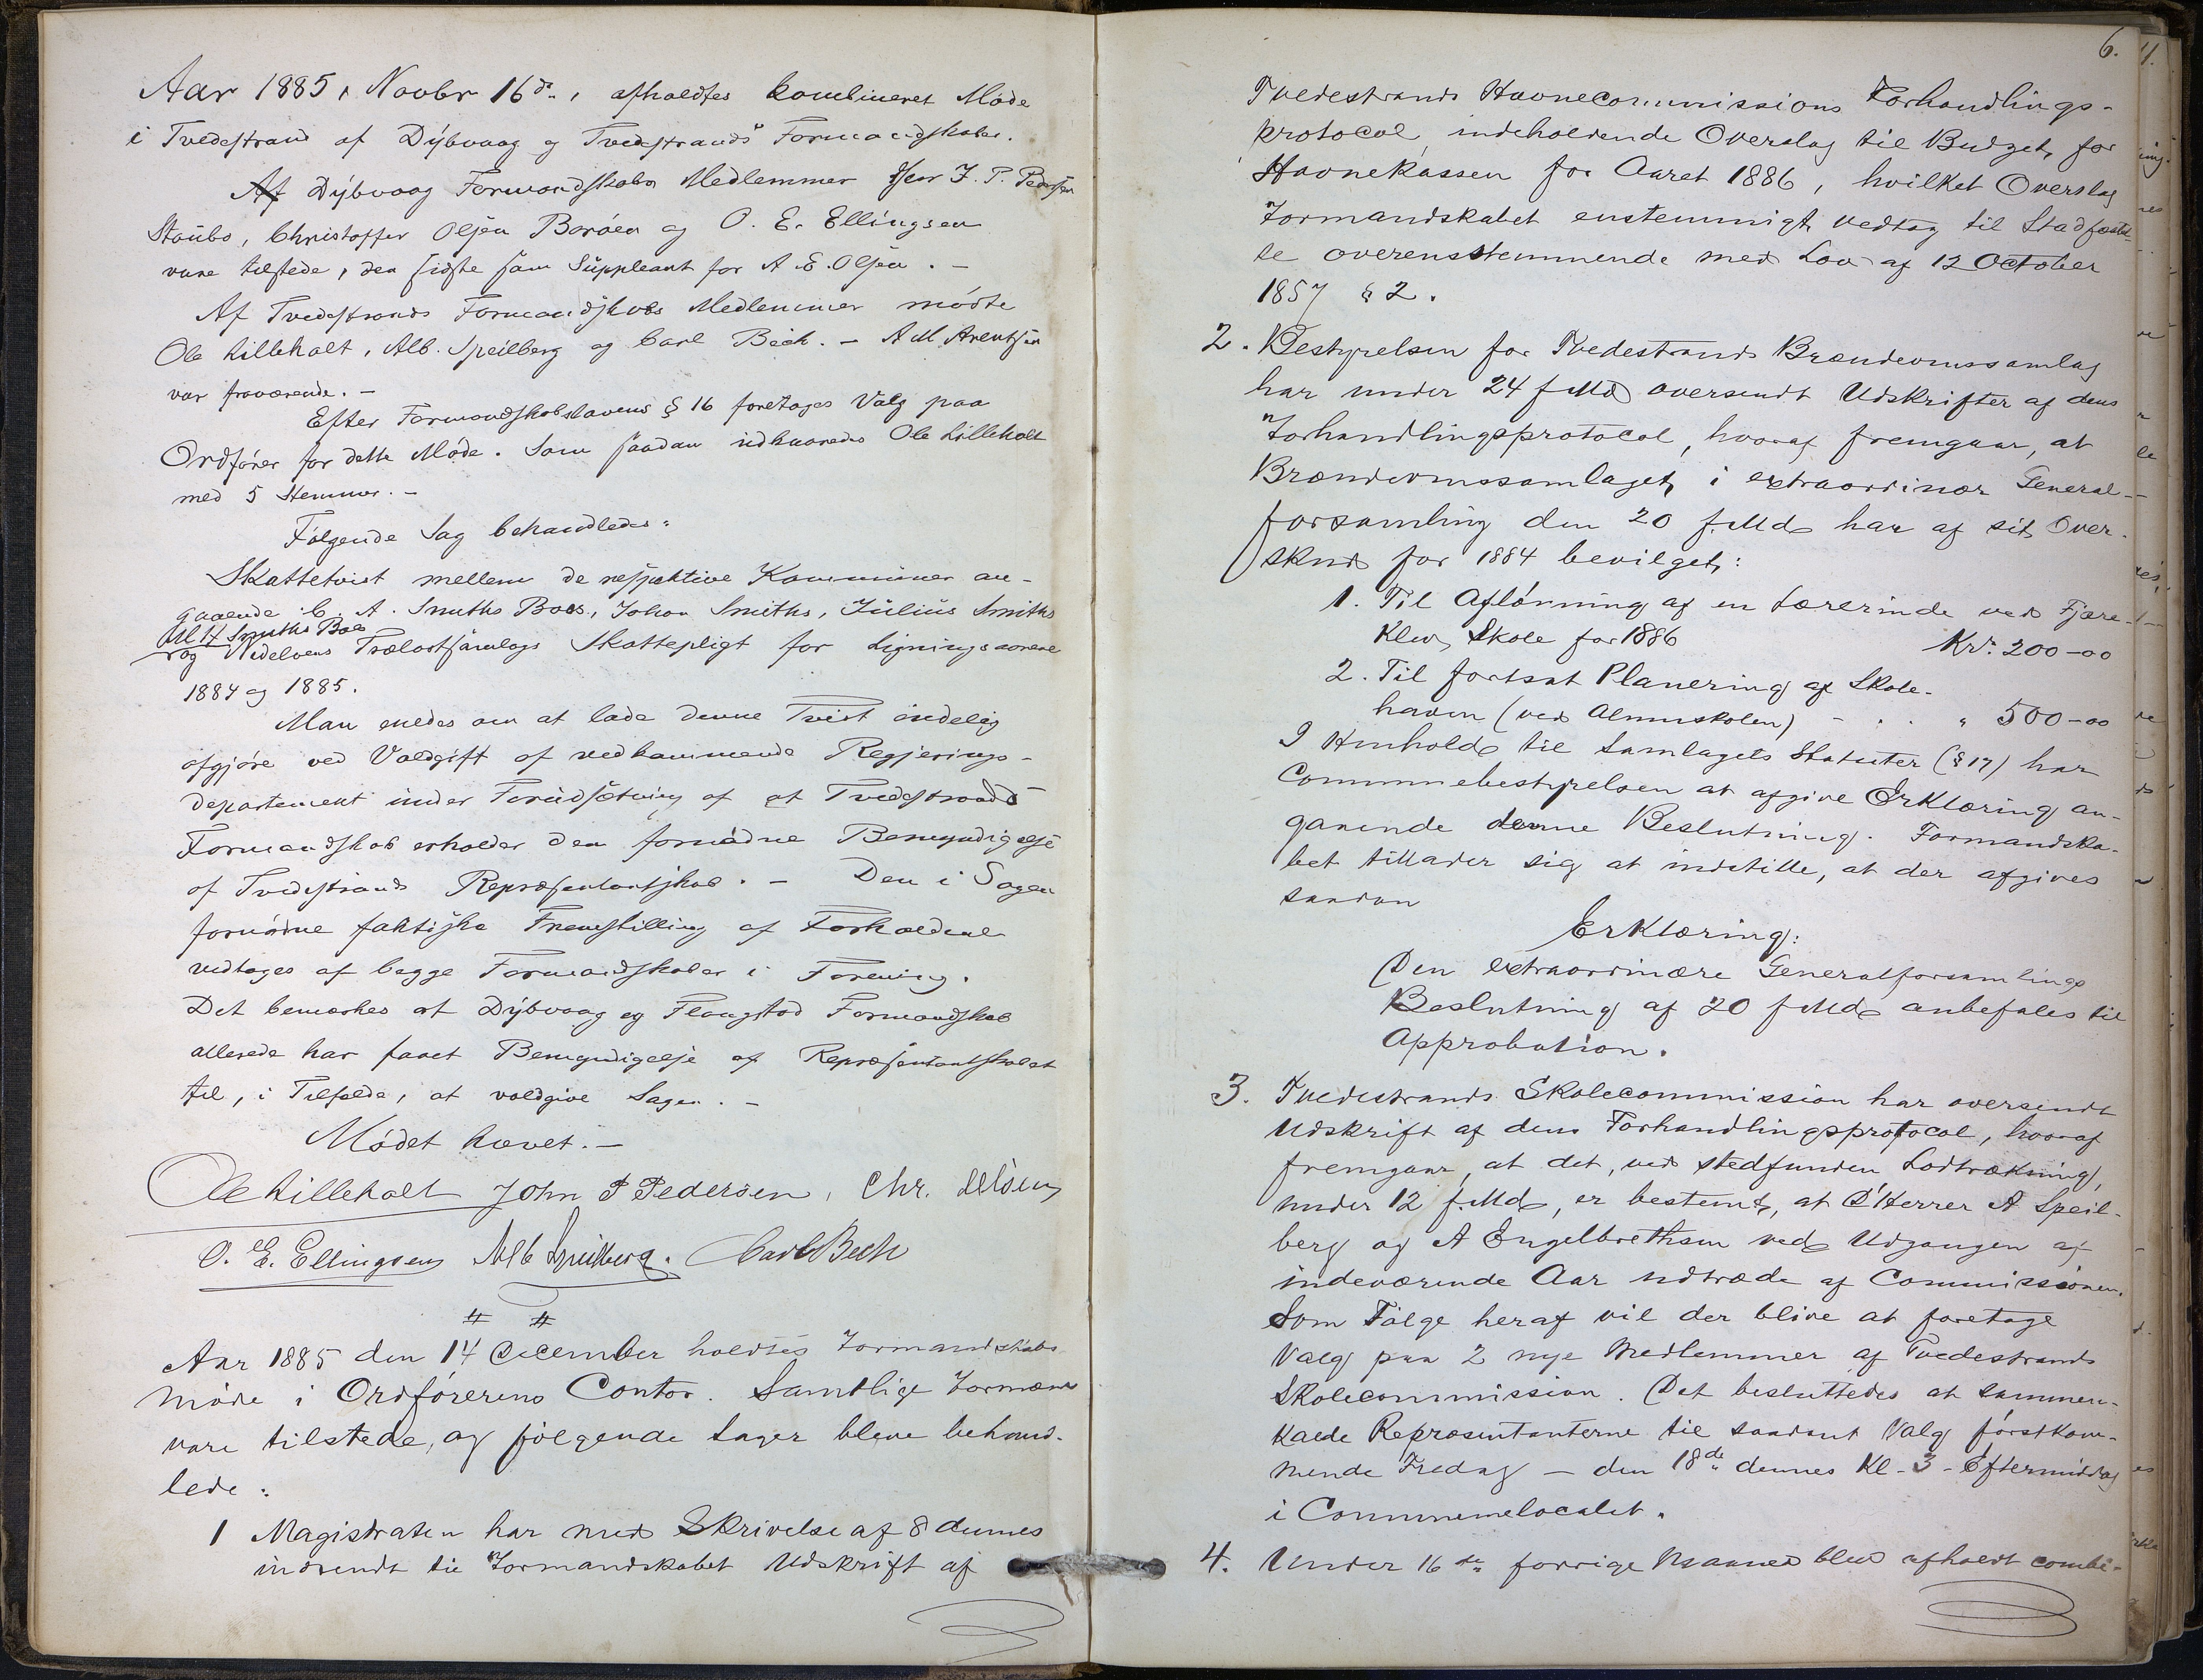 Aar 1885, Novbr 16de, afholdtes kombineret Møde
i Tvedestrand af Dybvaag og Tvedestrands Formandskaber.
Af Dybvaag Formandskabs Medlemmer Herr J. P. Pedersen
Staubø, Christoffer Olsen Borøen og O. E. Ellingsen
vare tilstede, den sidste som Suppleant for A. E. Olsen. –
Af Tvedestrands Formandskabs Medlemmer mødte
Ole Lilleholt, Alb. Speilberg og Carl Bech. – A M Arentsen
var fraværende. –
Efter Formandskabslovens § 16 foretages Valg paa
Ordfører for dette Møde. Som saadan udkaaredes Ole Lilleholt
med 5 Stemmer. –
Følgende Sag behandledes:
Skattetvist mellem de respektive Kommuner an-
gaaende C. A. Smiths Boes, Johan Smiths, Julius Smiths
M H Smiths Boes
og Nedelvens Trælastsamlags Skattepligt for Ligningsaarene
1884 og 1885.
Man enedes om at lade denne Tvist endelig
afgjøre ved Voldgift af vedkommende Regjerings-
departement under Forudsætning af at Tvedestrands
Formandskab erholder den fornødne Bemyndigelse
af Tvedestrands Repræsentantskab. – Den i Sagen
fornødne faktiske Fremstilling af Forholdene
vedtages af begge Formandskaber i Forening.
Det bemærkes at Dybvaag og Flaugstad Formandskab
allerede har faaet Bemyndigelse af Repræsentantskabet
til, i Tilfælde, at voldgive Sagen. –
Mødet hævet. –
Ole Lilleholt John P Pedersen, Chr. Olsen,
O. E. Ellingsen Alb Speilberg. Carl Bech
# #
Aar 1885 den 14 December holdtes Formandskabs
møde i Ordførerens Contor. Samtlige Formænd
vare tilstede, og følgende Sager bleve behand-
lede:
1 Magistraten har med Skrivelse af 8 dennes
indsendt til Formandskabet Udskrift af
6.
Tvedestrands Havnecommissions Forhandlings-
protocol, indeholdende Overslag til Budget for
Havnekassen for Aaret 1886, hvilket Overslag
Formandskabet enstemmigt vedtog til Stadfæstel-
se overensstemmende med Lov af 12 October
1857 § 2.
2. Bestyrelsen for Tvedestrands Brændevinssamlag
har under 24 f Md oversendt Udskrifter af dens
Forhandlingsprotocol, hvoraf fremgaar, at
Brændevinssamlaget i extraordinær General-
forsamling den 20 f. Md har af sit Over-
skud for 1884 bevilget:
1. Til Aflønning af en Lærerinde ved Fjære-
klev Skole for 1886 Kr. 200-00
2. Til fortsat Planering af Skole-
haven (ved Almuskolen) - . . " 500-00
I Henhold til Samlagets Statuter (§ 17) har
Communebestyrelsen at afgive Erklæring an-
gaaende denne Beslutning. Formandska-
bet tillader sig at indstille, at der afgives
saadan
Erklæring:
Den extraordinære Generalforsamlings
Beslutning af 20 f Md anbefales til
Approbation.
3. Tvedestrands Skolecommission har oversendt
Udskrift af dens Forhandlingsprotocol, hvoraf
fremgaar, at det, ved stedfunden Lodtrækning,
under 12 f. Md, er bestemt, at D'Herrer A Speil-
berg og A Engelbrethsen ved Udgangen af
indeværende Aar udtræde af Commissionen.
Som Følge heraf vil der blive at foretage
Valg paa 2 nye Medlemmer af Tvedestrands
Skolecommission. Det besluttedes at sammen-
kalde Repræsentanterne til saadant Valg førstkom-
mende Fredag – den 18de dennes Kl. 3 Eftermiddag
i Communelocalet.
4. Under 16de forrige Maaned blev afholdt combi-